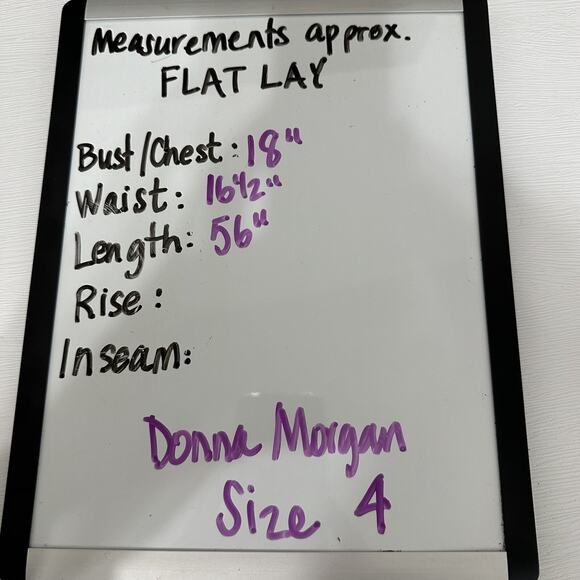 Measurements approx.
FLAT LAY
Bust/Chest: 18"
Waist: 16 1/2"
Length: 56"
Rise:
Inseam:
Donna Morgan
Size 4